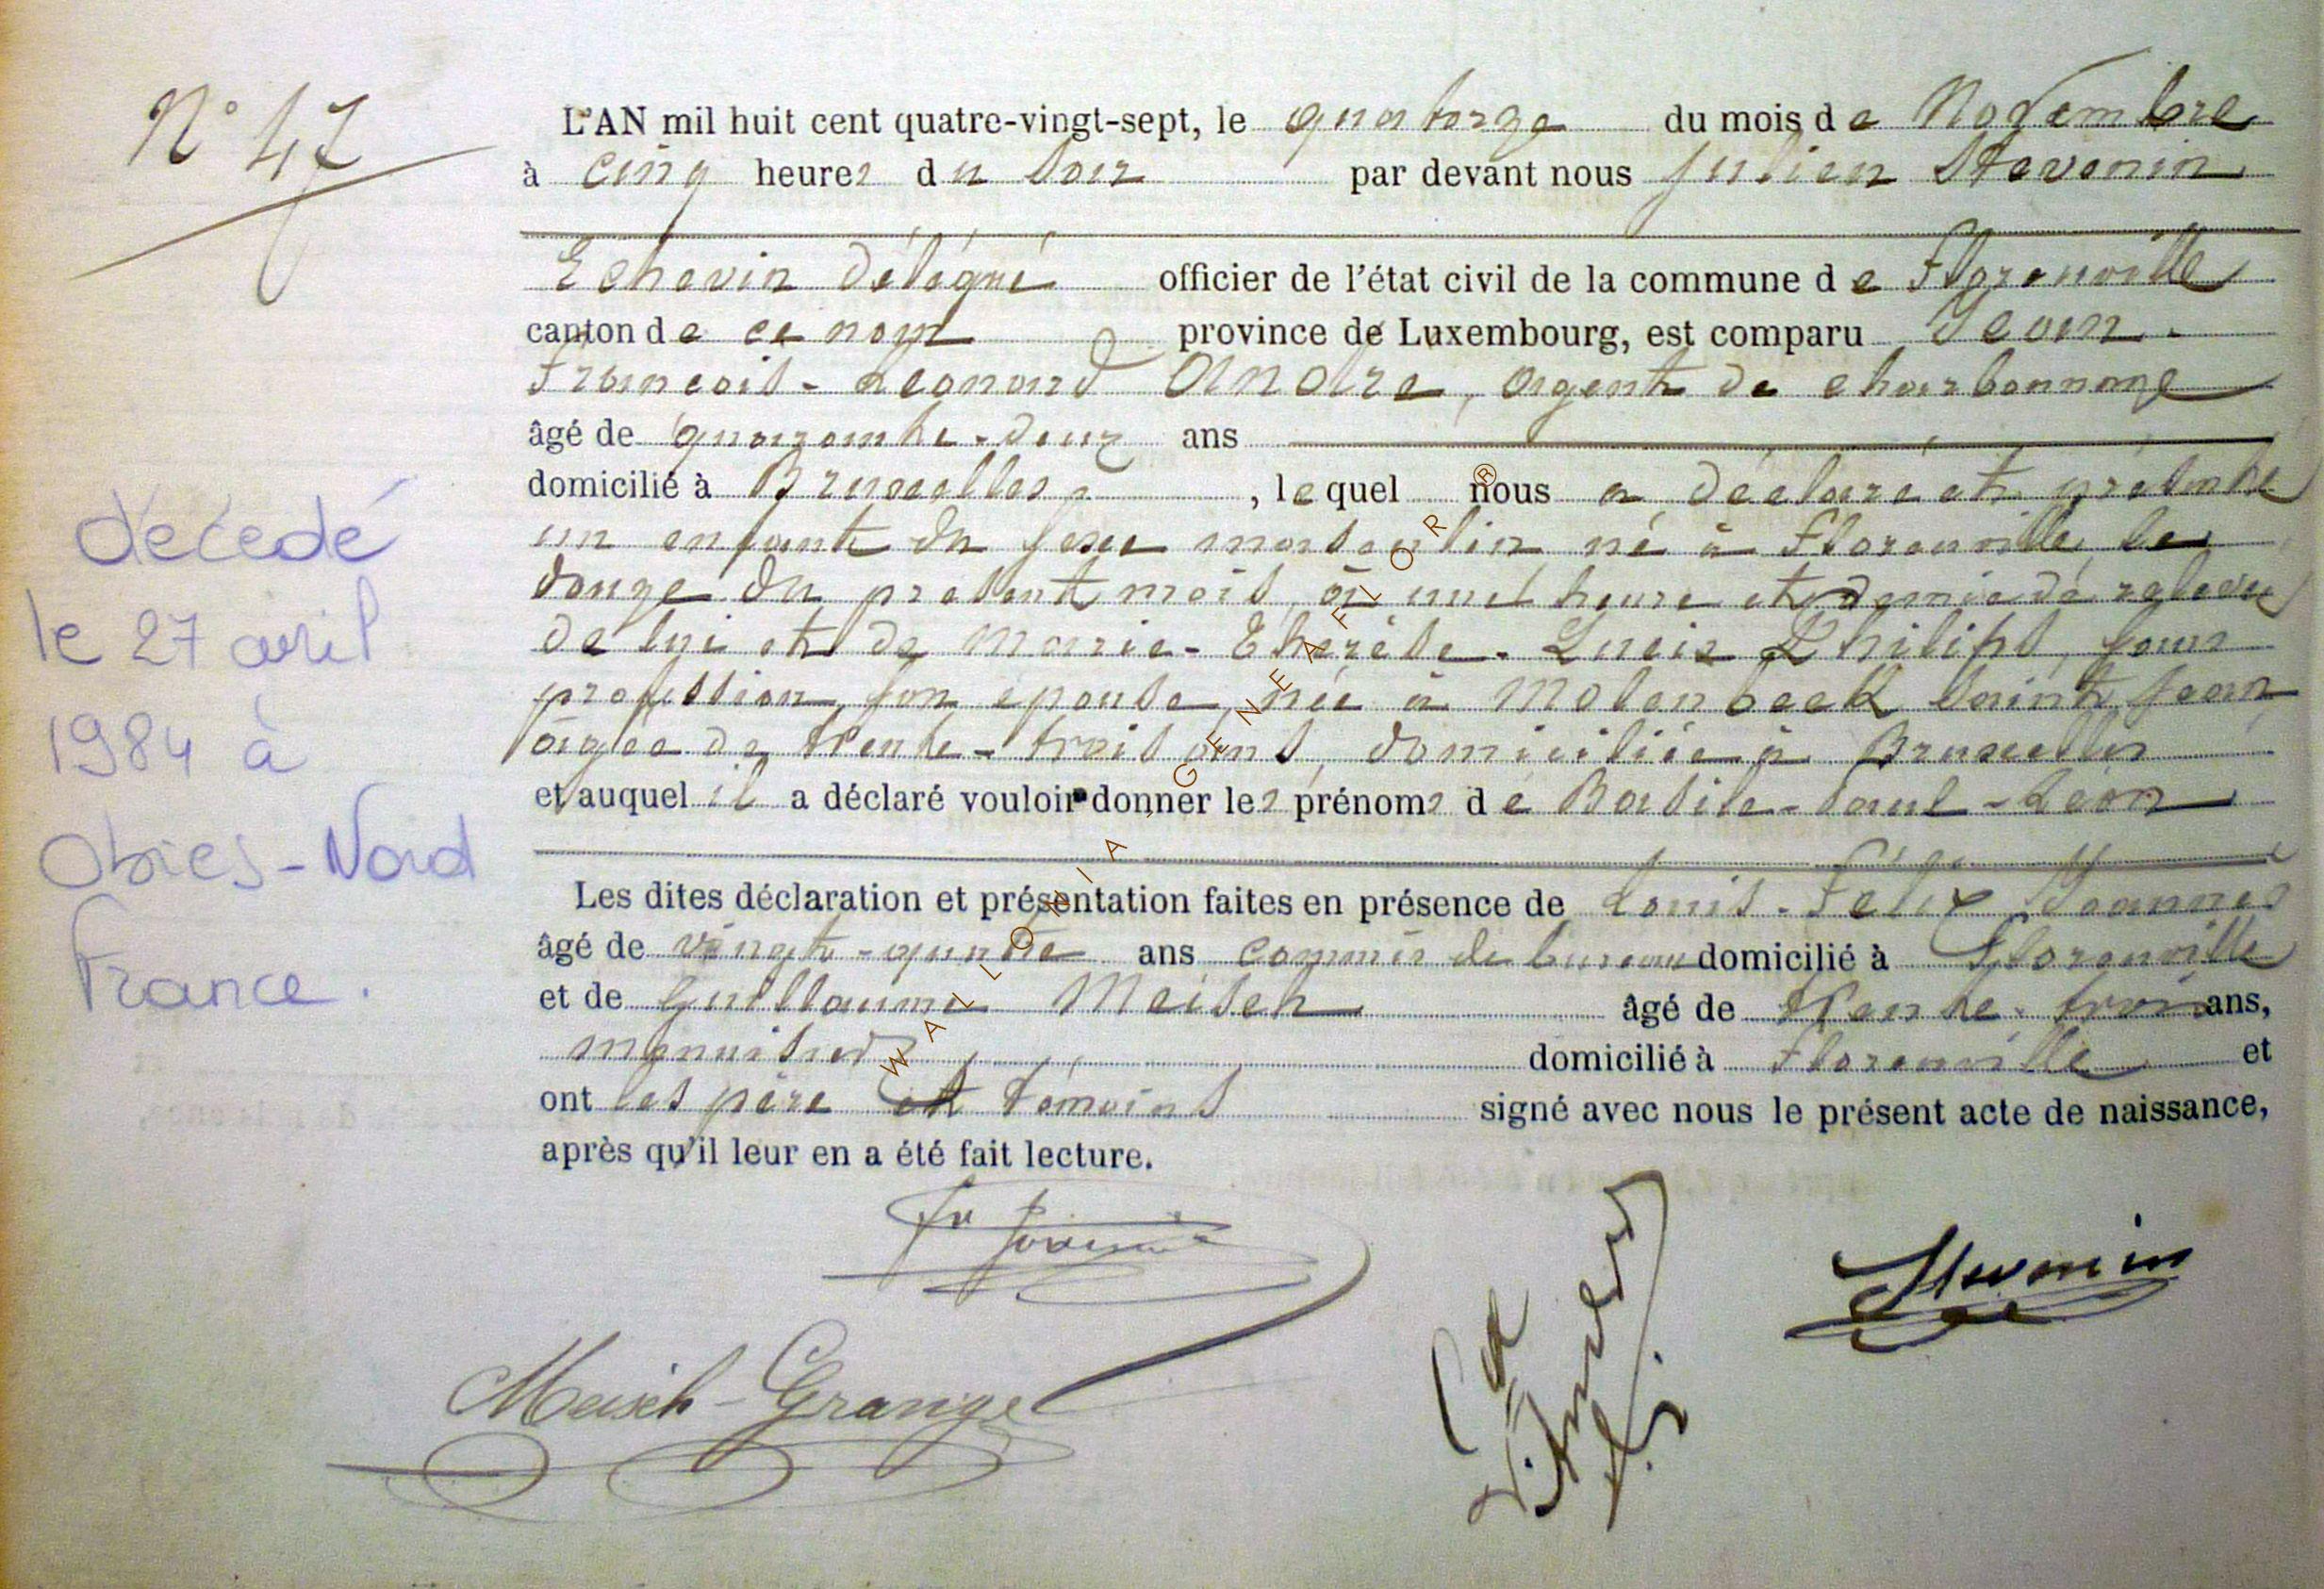 N° 47
L'AN mil huit cent quatre-vingt-sept, le quatorze du mois de Novembre
à cinq heures du soir par devant nous Julien Stevenin
Echevin délégué officier de l'état civil de la commune de Florenville
canton de ce nom province de Luxembourg, est comparu Jean-
François-Léonard agent de charbonnage
âgé de quarante-deux ans
domicilié à Bruxelles, lequel nous a déclaré et présenté
un enfant du sexe masculin né à Florenville, le
douze du présent mois, à une heure et demie de relevée
de lui et de Marie-Thérèse-Lucie Philips, sans
profession, son épouse, née à Molenbeek Saint Jean
âgée de trente-trois ans, domiciliée à Bruxelles
et auquel il a déclaré vouloir donner les prénoms de Basile-Paul-Léon
Les dites déclaration et présentation faites en présence de Louis-Félix
âgé de vingt-quatre ans commis de bureau domicilié à Florenville
et de Guillaume Meisch âgé de trente-trois ans,
menuisier domicilié à Florenville et
ont les père et témoins signé avec nous le présent acte de naissance,
après qu'il leur en a été fait lecture.
décedé
le 27 avril
1984 à
Obies-Nord
France.
Meisch-Grange
Stevenin
WALLONIA, GENEAFLOR ®